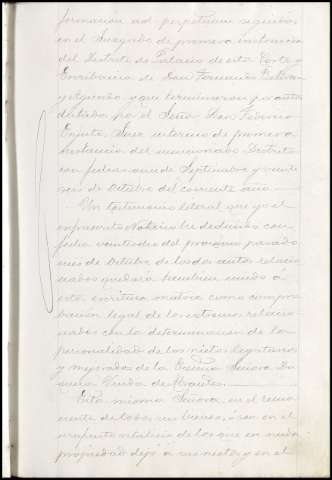 formación ad perpetuam seguidas
en el Juzgado de primera instancia
del Distrito de Palacio de esta Corte y
Escribanía de Don Fernando
y que terminaron por auto
dictado por el Señor Don Federico
Enjuto, Juez interino de primera
instancia del mencionado Distrito
con fechas once de Septiembre y veinte
seis de Octubre del corriente año.
Un testimonio literal que yo el
infrascrito Notario he deducido con
fecha veintidos del proximo pasado
mes de Octubre de los dos autos relacio
nados quedará tambien unido á
esta escritura matriz como compro
bacion legal de los extremos relacio
nados con la determinacion de la
personalidad de los nietos legatarios
y mejorados de la Excma Señora Du
quesa Viuda de
Esta misma Señora en el rema
nente de todos sus bienes, ó sea en el
usufructo vitalicio de los que en nuda
propiedad dejó á sus nietos y en el